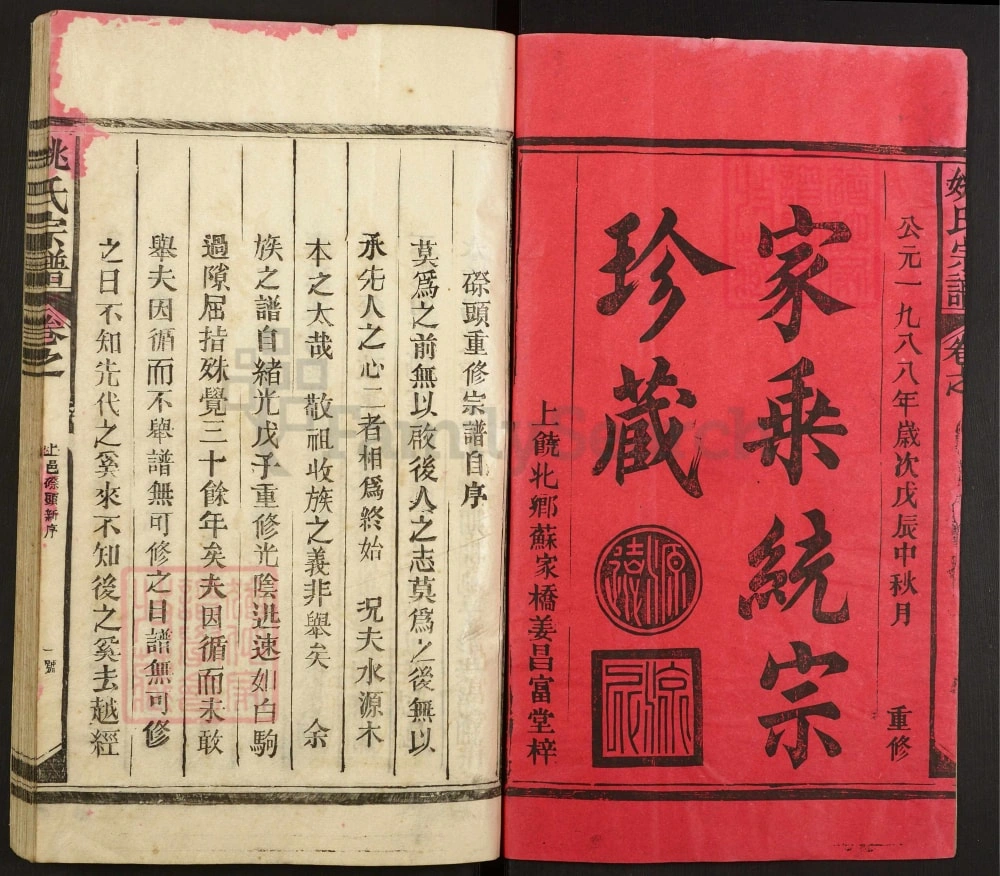 姚氏宗譜
卷之
公元一九八八年歲次戊辰中秋月 重修
家乗統宗
珍藏
上饒北鄉蘇家橋姜昌富堂梓
磜頭重修宗譜自序
莫爲之前無以啟後人之志莫爲之後無以
承先人之心二者相爲終始 况夫水源木
本之太哉 敬祖收族之義非舉矣 余
族之譜自緒光戊子重修光陰迅速如白駒
過隙屈指殊覺三十餘年矣夫因循而未敢
舉夫因循而不舉譜無可修之日譜無可修
之日不知先代之奚來不知後之奚去越經
姚氏宗譜
卷之
上邑磜頭新序
一號
FamilySearch